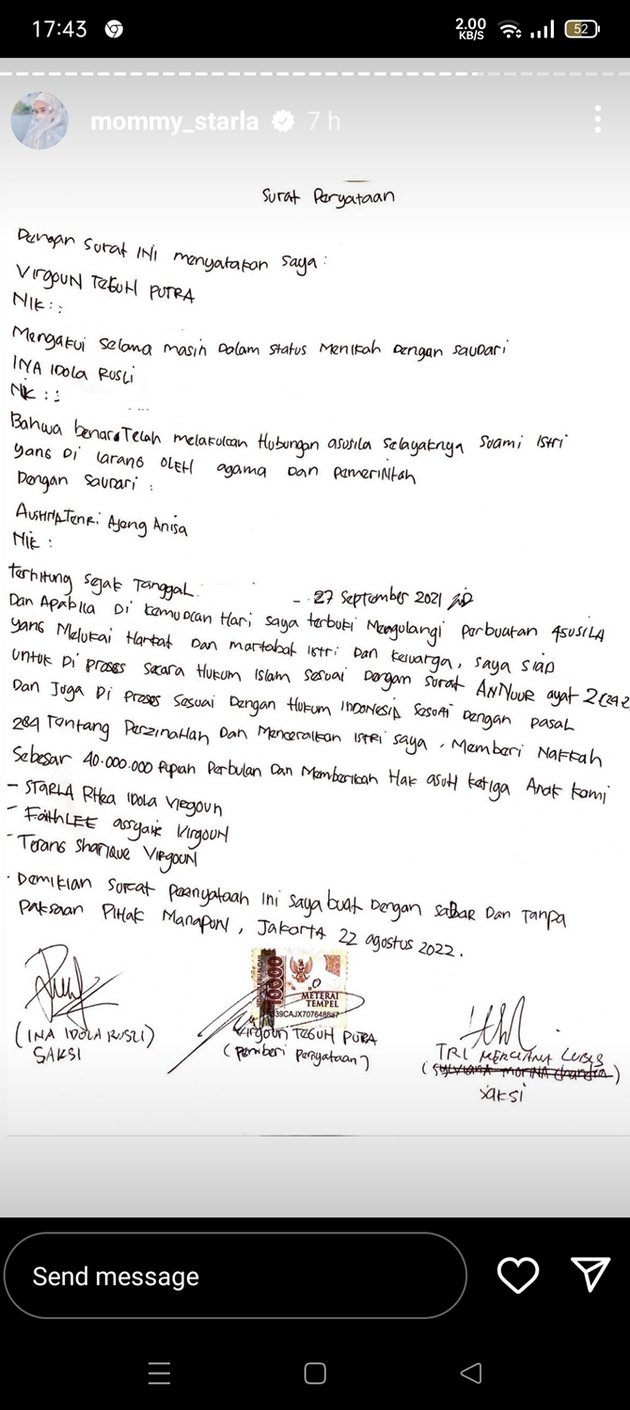 17:43
2.00
KB/S
52
mommy_starla 7 h
Surat Peryataan
Dengan Surat INI menyatakan Saya :
VIRGOUN TEGUH PUTRA
NIK : :
Mengakui Selama masih Dalam Status Menikah Dengan saudari
INA IDOLA RUSLI
NIK : :
Bahwa benar Telah melakukan Hubungan asusila Selayaknya Suami Istri
yang Di larang OLEH agama Dan Pemerintah
Dengan Saudari :
Tenri Ajeng Anisa
NIK :
Terhitung Sejak Tanggal - 27 September 2021
Dan Apabila Di kemudian Hari saya terbukti Mengulangi Perbuatan ASUSILA
yang Melukai Harkat Dan martabat Istri Dan Keluarga, Saya Siap
Untuk Di Proses Secara Hukum Islam Sesuai Dengan Surat ANNUUR ayat 2 (24:2
Dan Juga Di Proses Sesuai Dengan Hukum INDONESIA Sesuai Dengan Pasal
284 Tentang Perzinahan Dan Menceraikan Istri saya, Memberi Nafkah
Sebesar 40.000.000 Rupiah Perbulan Dan Memberikan Hak asuh Ketiga Anak Kami
- STARLA RHea IDOLA VIRGOUN
- FaithLEE assyaire VIRGOUN
- Terang Sharique VIRGOUN
. Demikian Surat Pernyataan Ini Saya buat Dengan saBar Dan Tanpa
Paksaan PIHAK ManaPUN, JakartA 22 agustus 2022.
10000
METERAI
TEMPEL
39CAJX707648887
(INA IDOLA RUSLI)
SAKSI
Virgoun TEGUH PUTRA
(Pemberi Peryataan)
TRI MERCIANA LUBIS
(Sylviana Morina Chandra)
SAKSI
Send message